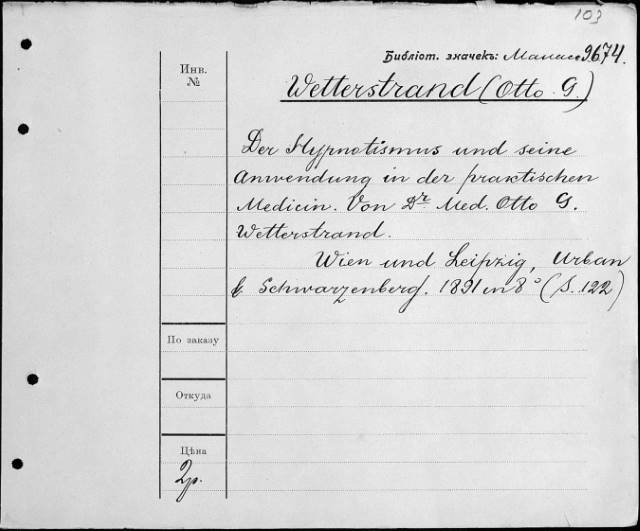 103
Библіот. значекъ: Манасс 9674.
Инв.
№
Wetterstrand (Otto G.)
Der Hypnotismus und seine
Anwendung in der praktischen
Medicin. Von Dr. Med. Otto G.
Wetterstrand.
Wien und Leipzig, Urban
& Schwarzenberg. 1891 in 8° (S. 122)
По заказу
Откуда
Цѣна
2р.